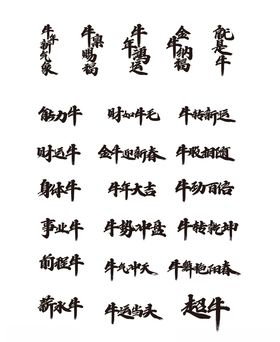 牛年新气象
牛气赐福
牛年鸿运
金牛纳福
就是牛
能力牛
财如牛毛
牛转新运
财运牛
金牛迎新春
牛吸相随
身体牛
牛年大吉
牛劲百倍
事业牛
牛势冲盘
牛转乾坤
前程牛
牛气冲天
牛舞艳阳春
薪水牛
牛运当头
超牛